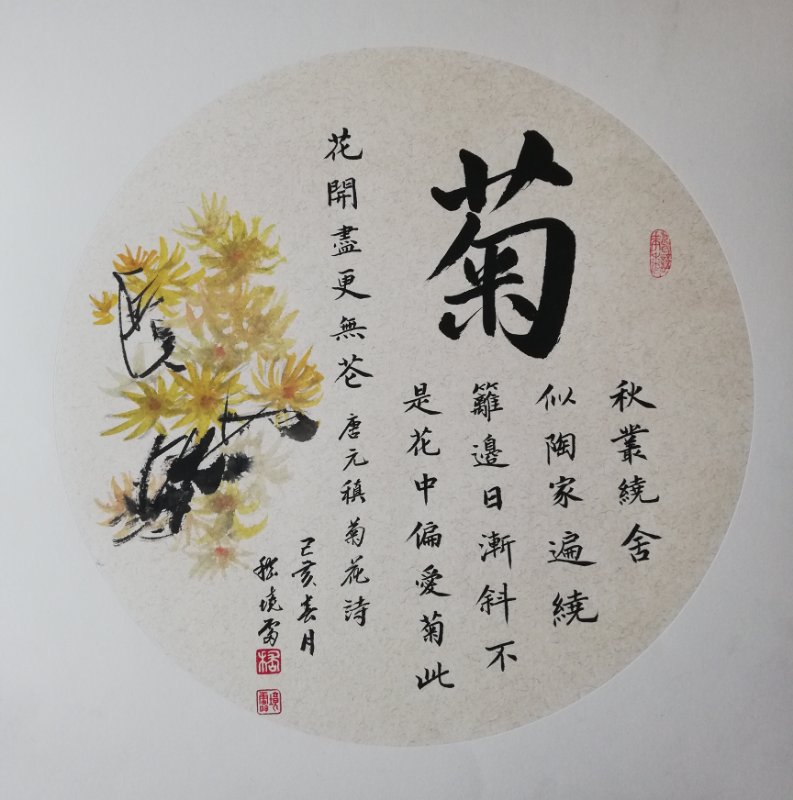 菊
秋叢繞舍
似陶家遍繞
籬邊日漸斜不
是花中偏愛菊此
花開盡更無花
唐元稹菊花詩
己亥春月